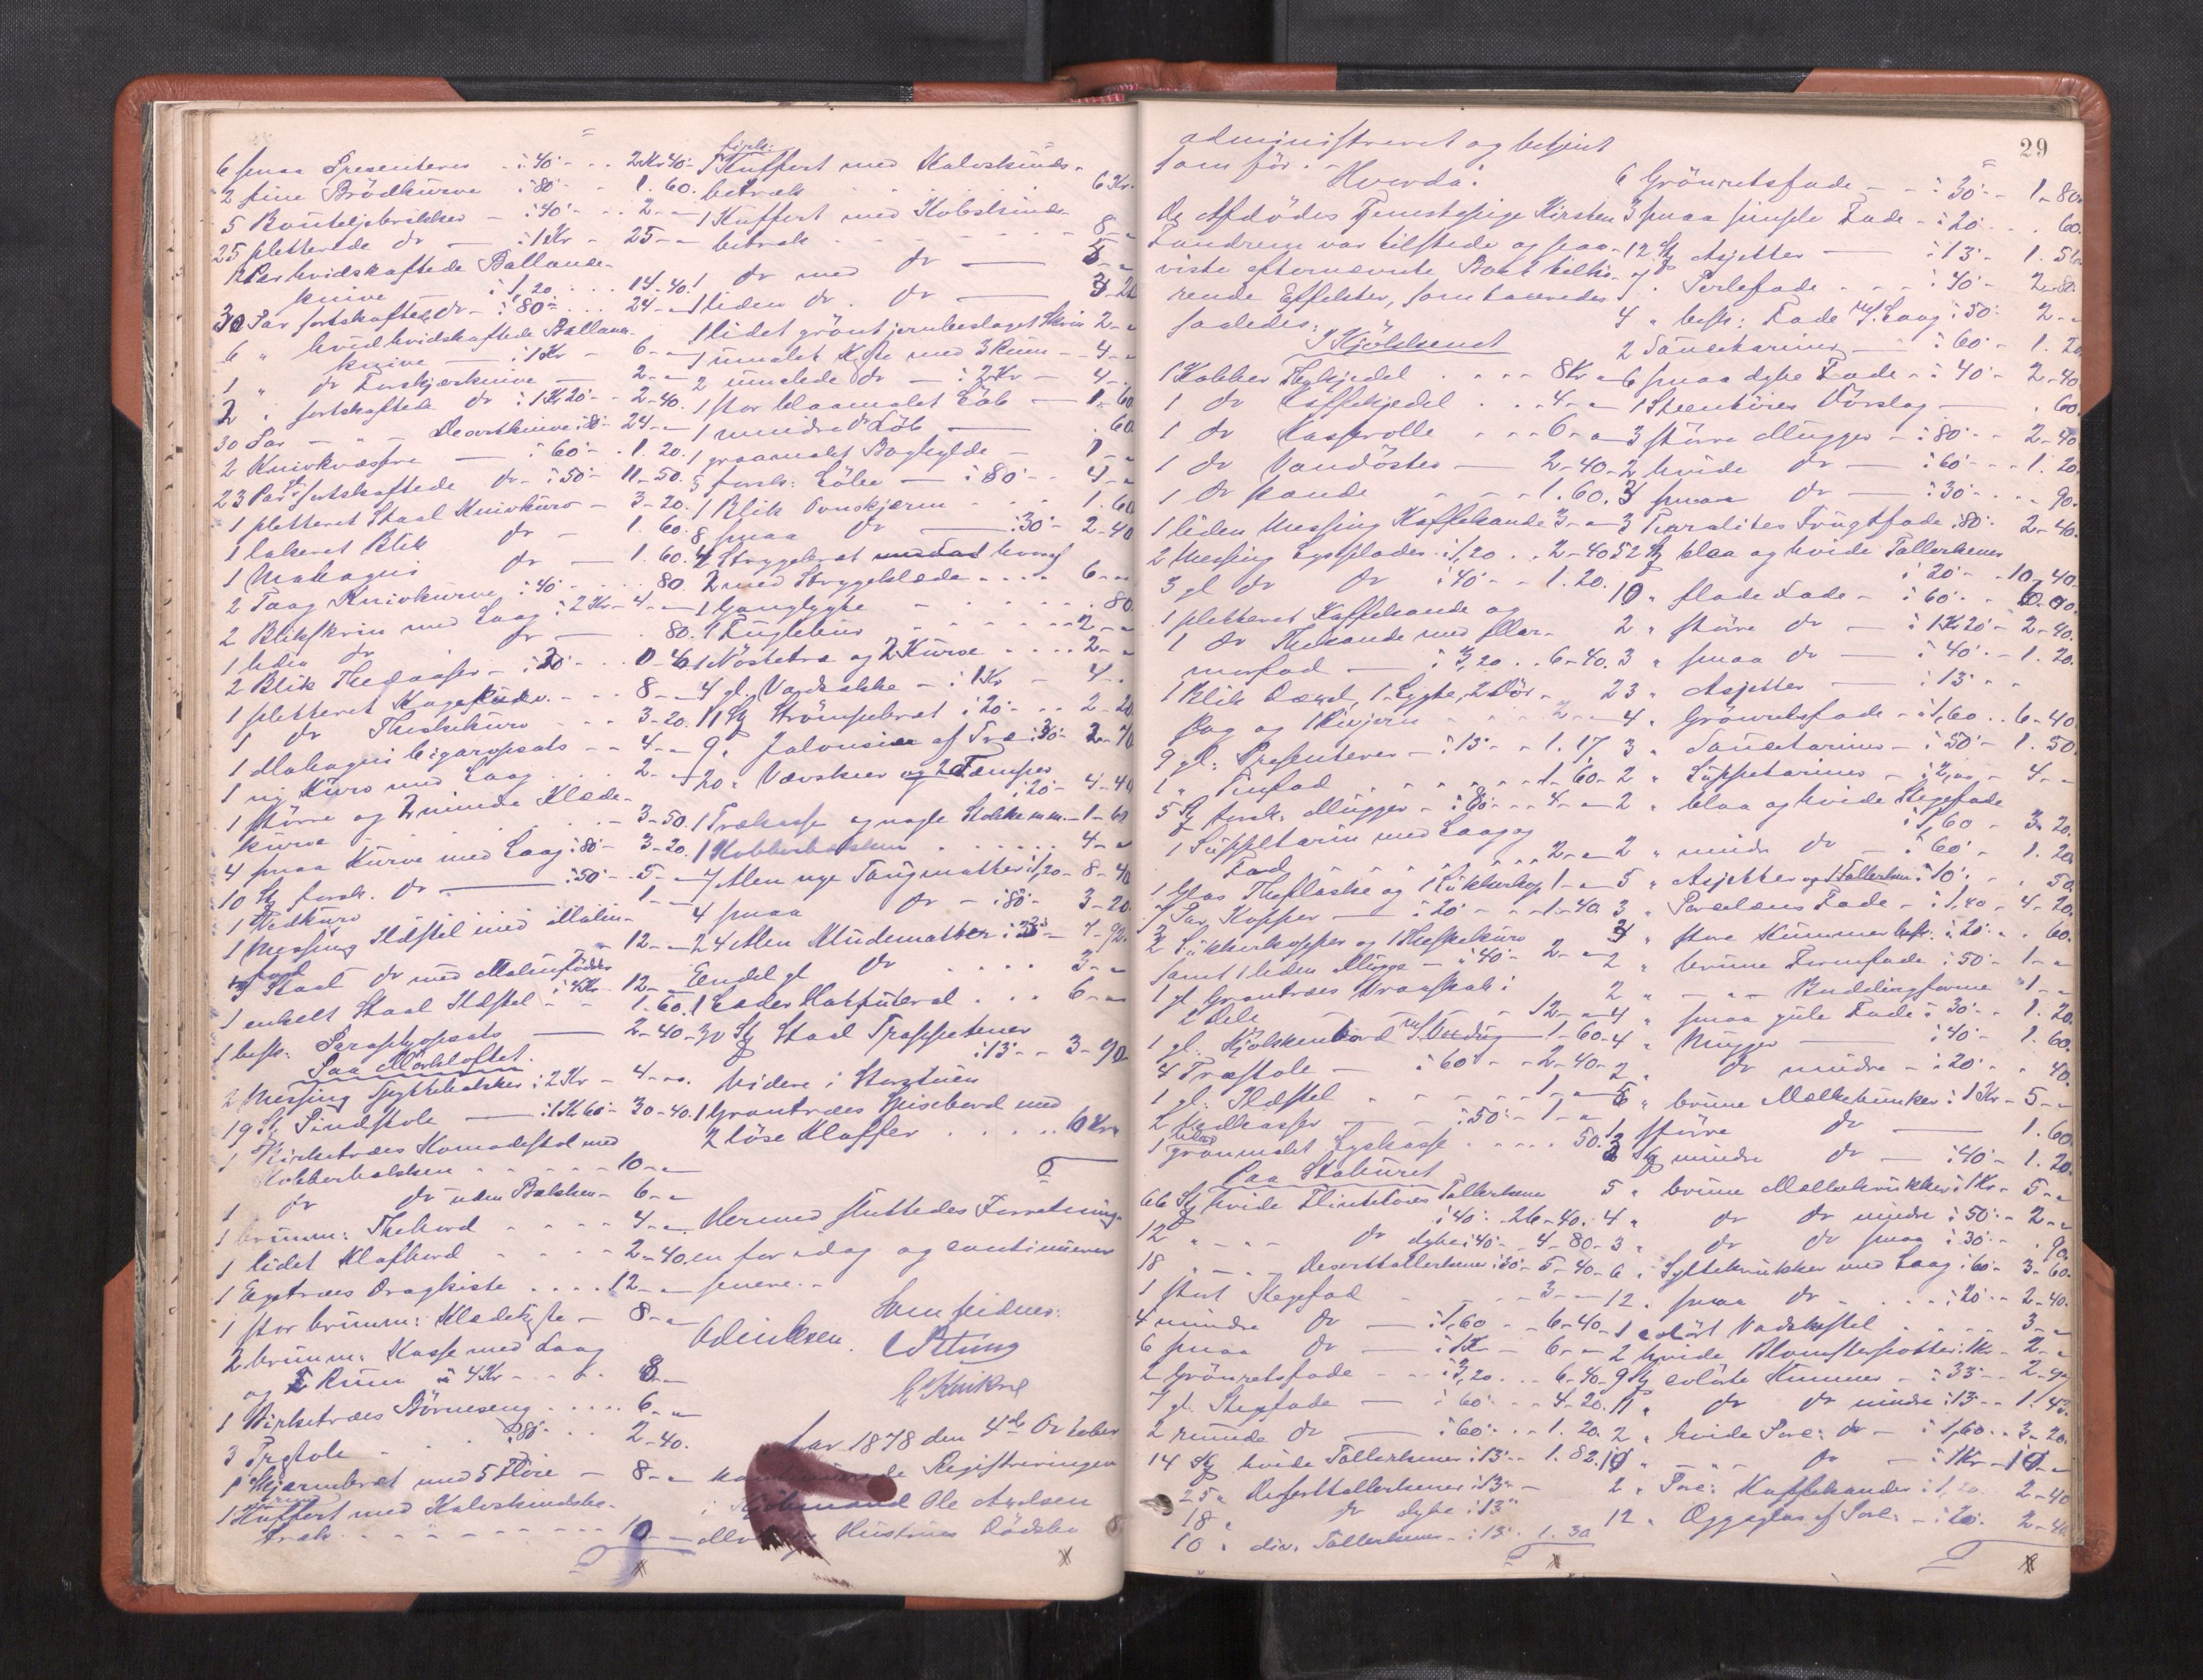 6 smaa Presenteres - : 40 : - .. 2Kr 40 :
2 fine Brödkurve : 80 : - 1. 60.
5 Bouteljebrikker - : 40 : - .. 2 - -
25 pletterede do - : 1 Kr - 25 - -
12 Par hvidskaftede Ballance-
knive - : 1,20 ... 14 - 40.
30 Par sortskaftede do - : 80 : - 24 - -
6 " hvidskaftede Ballance-
knive - : 1 Kr - 6 - -
1 " do Forskjærknive 2 - -
2 " sortskaftede do : 1 Kr 20 : - 2 - 40.
30 Par - " - Desertknive : 80 : - 24 - -
2 Knivkvæssere - : 60 : - . 1. 20.
23 Par sortskaftede do - : 50 : - 11 - 50.
1 pletteret Staal Knivkurv - 3 - 20.
1 lakeret Blik do - 1. 60.
1 Mahagni do - 1. 60.
2 Taag Knivkurve : 40 : - ... 80.
2 Blikskrin med Laag : 2 Kr - 4 - -
1 liden do do . 80.
2 Blik Thedaaser - : 20 : - .. 0 - 40
1 pletteret Kagekurv - .. 8 - -
1 do Theskekurv ... 3 - 20.
1 Mahagni Cigaropsats - - 4 - -
1 ny Kurv med Laag ... 2 - -
1 större og 2 mindre Klæde-
kurve - 3 - 50.
4 smaa Kurve med Laag : 80 - 3 - 20.
10 St forsk. do - : 50 : - . 5 - -
1 Vedkurv 1 - -
1 Messing Ildstel med Malm-
fod - 12 - -
3 Staal do med Malmfödder
: 4 Kr - 12 - -
1 enkelt Staal Ildstel - - 1. 60.
1 besk: Paraplyopsats 2 - 40 -
Paa Mörkloftet.
2 Messing Spyttebakker : 2 Kr - 4 - -
19 St Pindstole - : 1 Kr 60 : - 30 - 40.
1 Birketræes Komodestol med
Kobberbækken - - - - 10 - -
1 do do uden Bækken - 6 - -
1 brunm: Thebord - . . . 4 - -
1 lidet Klafbord . . . 2 - 40.
1 Egetræes Dragkiste .... 12 - -
1 stor brunm: Klædekiste - 8 - -
2 brunm. Kasse med Laag
og 2 Rum à 4 Kr - - . . 8 - -
1 Birketræes Börneseng ..... 6 - -
3 Trestole . . : 80 : . . 2 - 40.
1 Skjærmbræt med 5 Flöie - 8 - -
1 Kuffert med Kalvskindsbe-
træk - - - - - - - - 10 - -
1 Kuffert med Kalvskinds-
betræk - - - - 6 Kr.
1 Kuffert med Kobskinds-
betræk - - - - 8 - -
1 do med do - 5 - -
1 liden do . do - 3 - 20
1 lidet grönt jernbeslaget Skrin 2 - -
1 umalet Kiste med 3 Rum - - 4 - -
2 umalede do - : 2 Kr - 4 - -
1 stor blaamalet Löb - 1 - 60
1 mindre do Löb - . 60.
1 graamalet Boghylde - 1 - -
5 forsk: Löbe - : 80 : - . 4 - -
1 Blik Ovnskjærm - . 1. 60
8 smaa do - : 30 : - 2 - 40
4 Strygebræt hvoraf
2 med Strygeklæde ..... 6 - -
1 Ganglygte - . . . . . . 80.
1 Fuglebuur . . . . . . . 2 - -
1 Nöstetræ og 2 Kurve .... 2 - -
4 gl. Vadsække - : 1 Kr - 4 - .
11 St Strömpebræt : 20 : - .. 2 - 20
9 " Jalousier af Træ : 30 : - 2 - 70
20 " Vævskeer
: 20 : - 4 - 40
1 Trækasse og nogle Stokke m.m. - 1 - 60
1 Kobberbækken . . . . . . 4 - -
7 Alen nye Taugmatter : 1,20 - 8 - 40
4 smaa do - : 80 : - 3 - 20.
24 Alen Kludematter : 33 : - 7 - 92.
Eendel gl do . . . . 3 - -
1 Læder Hatfuteral ... 6 - -
30 St Staal Trappestænger
: 13 : - - 3 - 90
Videre i Storstuen
1 Grantræes Spisebord med
2 löse Klaffer ..... 6 Kr.
Hermed sluttedes Forretning-
en for idag og continueres
senere. -
Som Vidner:
Aar 1878 den 4de October
Registreringen
i Kjöbmand Ole Axelsen
Hustrues Dödsbo
29
administreret og betjent
som för. -
Hvorda:
De Afdödes Tjenestepige Kirsten
Landrum var tilstede og paa-
viste efternævnte Boet tilhö-
rende Effekter, som taxeredes
saaledes:
I Kjökkenet
1 Kobber Thekjedel . . . . 8 Kr -
1 do Kaffekjedel . . . 4 - -
1 do Kasserolle . . . 6 - -
1 do Vandöster - 2 - 40 -
1 do pande - - - 1. 60.
1 liden Messing Kaffekande 3 - -
2 Messing Lyseplader : 1,20 . . 2 - 40
3 gl do do : 40 : - - 1. 20.
1 pletteret Kaffekande og
1 do Thekande med Mar-
morfad - : 3,20 . . 6 - 40.
1 Blik Durk, 1 Lygte, 2 Dör-
slag og 1 Rivjern - - - 2 - -
9 gl: Presenterer - : 13 : - - 1. 17.
1 " Tinfad . . . . . - 1 - 60 -
5 St forsk: Mugger - : 80 : - - 4 - -
1 Suppeterin med Laag og
Fad . . . . . . . 2 - -
1 Glas Theflaske og 1 Sukkerkop 1 - -
7 Par Kopper - : 20 : - - 1 - 40.
2 Sukkerkopper og 1 Theskekurv
samt 1 liden Mugge - : 40 : - 2 - -
1 gl. Grantræes Vraaskab i
2 Dele - - - 12 - -
1 gl. Kjökkenbord 1 - 60 -
4 Træstole - : 60 : - - 2 - 40 -
1 gl. Ildstel - - - - - 1 - -
2 Vedkasser - : 50 : - 1 - -
1 grönmalet Lyskasse .... 50.
Paa Stabüret
66 St hvide Flintetöies Tallerkener
: 40 : - 26 - 40.
12 " - " - do dybe : 40 : - 4 - 80 -
18 " - " - Deserttallerkener : 30 : - 5 - 40 -
1 stort Stegefad . - - - 3 - -
4 mindre do - : 1,60 - - 6 - 40 -
6 smaa do - : 1 Kr - 6 - -
2 Grönretsfade - - : 3,20 . . 6 - 40 -
7 gl. Stegefade - : 60 : - . 4 - 20.
2 runde do - : 60 : - . 1. 20
14 St hvide Tallerkener : 13 : - - 1. 82.
25 " Deserttallerkener : 13 : - -
18 " do dybe : 13 :
10 " div. Tallerkener - : 13 : - 1. 30
6 Grönretsfade - - : 30 : - - 1 - 80.
3 smaa simple Fade - : 20 : . . . 60.
12 St Asjetter - : 13 : - 1. 56
7 " Perlefade - - - : 40 : - 2 - 80.
4 " besk: Fade m/Laag : 50 : 2 - -
2 Sauceteriner - : 60 : - 1. 20
6 smaa dybe Fade - : 40 : - 2 - 40
1 Steentöies Dörslag - . 60.
3 större Mugger - : 80 : - - 2 - 40
2 hvide do - : 60 : - - 1. 20.
3 smaa do - : 30 : - - - 90.
3 Frugtfade : 80 : - 2 - 40.
52 St blaa og hvide Tallerkener
: 20 : - - 10 - 40.
10 " flade Fade - : 60 : - 6 - 00.
2 " större do - : 1 Kr 20 : - 2 - 40.
3 " smaa do - : 40 : - - 1. 20.
23 " Asjetter - : 13 : - -
4 " Grönretsfade - : 1,60 . . 6 - 40
3 " Sauceteriner - : 50 : - 1. 50.
2 " Suppeteriner - : 2,00 - 4 - -
2 " blaa og hvide Stegefade
: 1,60 - 3. 20.
2 " mindre do - : 60 : - 1. 20
5 " Asjetter og 1 Tallerken : 10 : - . 50.
3 " Porcelæns Fade - : 1,40 - 4 - 20.
3 " store Kummer besk: : 20 : . . 60.
2 " brune Formfade : 50 : - 1 - -
2 " - " - Buddingforme " 1 - -
4 " smaa gule Fade : 30 : - 1. 20.
4 " Mugger - : 40 : - 1. 60.
2 " do mindre - : 20 : - . 40.
5 " brune Melkebunker : 1 Kr - 5 - -
1 större do - 1. 60.
3 St mindre do - : 40 : - 1. 20.
5 " brune Melkekrukker : 1 Kr - 5 - -
4 " do do mindre : 50 : - 2 - -
3 " do do smaa : 30 : - . 90.
6 " Syltekrukker med Laag : 60 - 3 - 60.
12 " smaa do - . . . : 20 : - - 2 - 40.
1 colört Vadskestel . . . . 3 - -
2 hvide Blomsterpotter : 1 Kr - 2 - -
9 St colörte Kummer - : 33 : - - 2 - 97
11 " do do mindre : 13 : - - 1. 43.
2 " hvide Porc: do - : 1,60 . . 3 - 20.
10 " - " - do - : 1 Kr - 10 - -
2 " Porc: Kaffekander : 1,20 2 - 40
12 " Æggeglas af Porc: - : 20 : 2 - 40